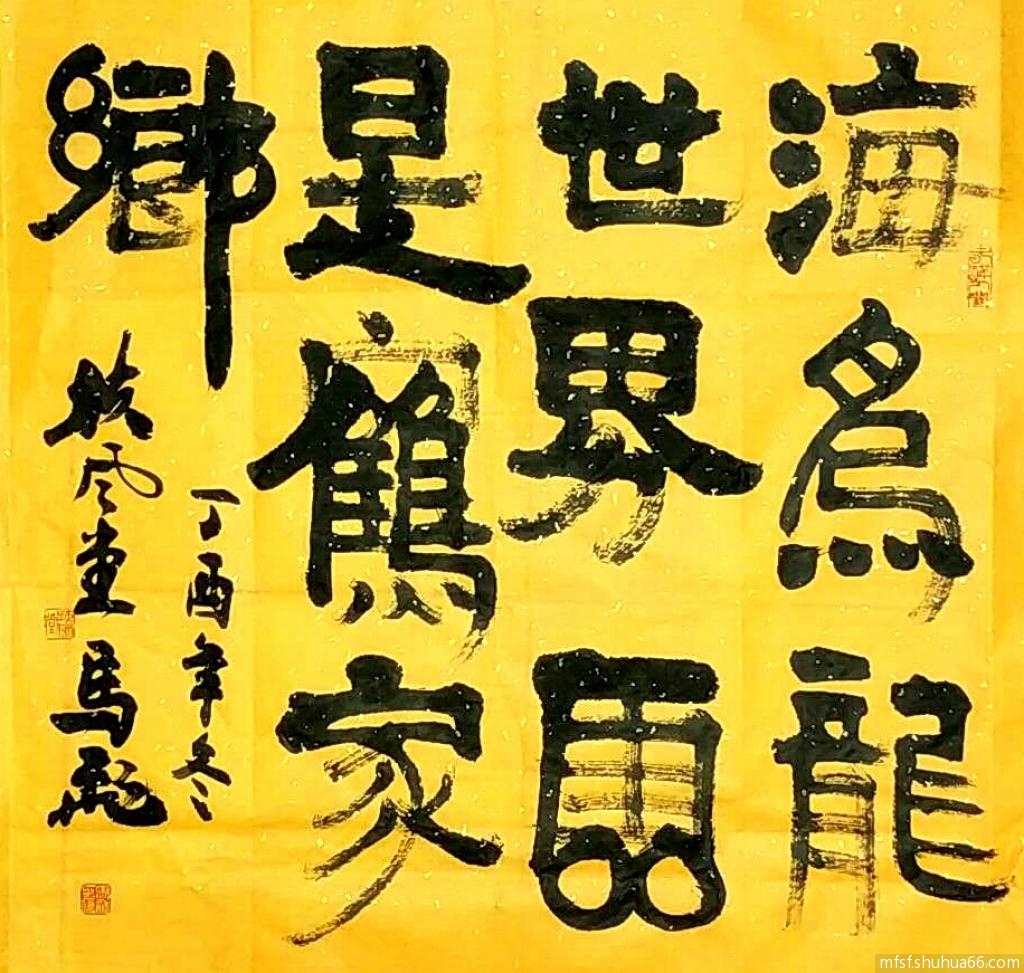 海為龍
世界雲
是鶴家
鄉
丁酉年冬
扶風堂馬飛
mfsf.shuhua66.com